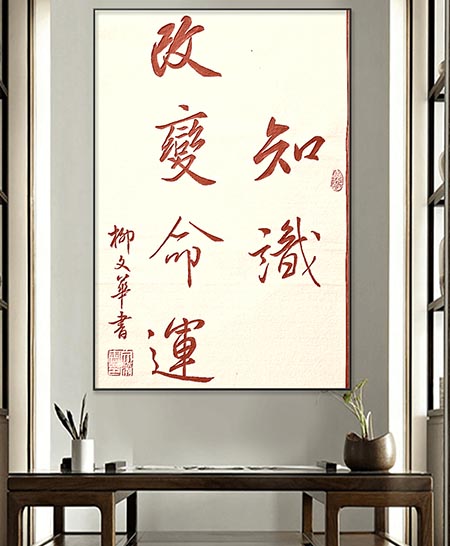 知識
改變命運
柳文華書